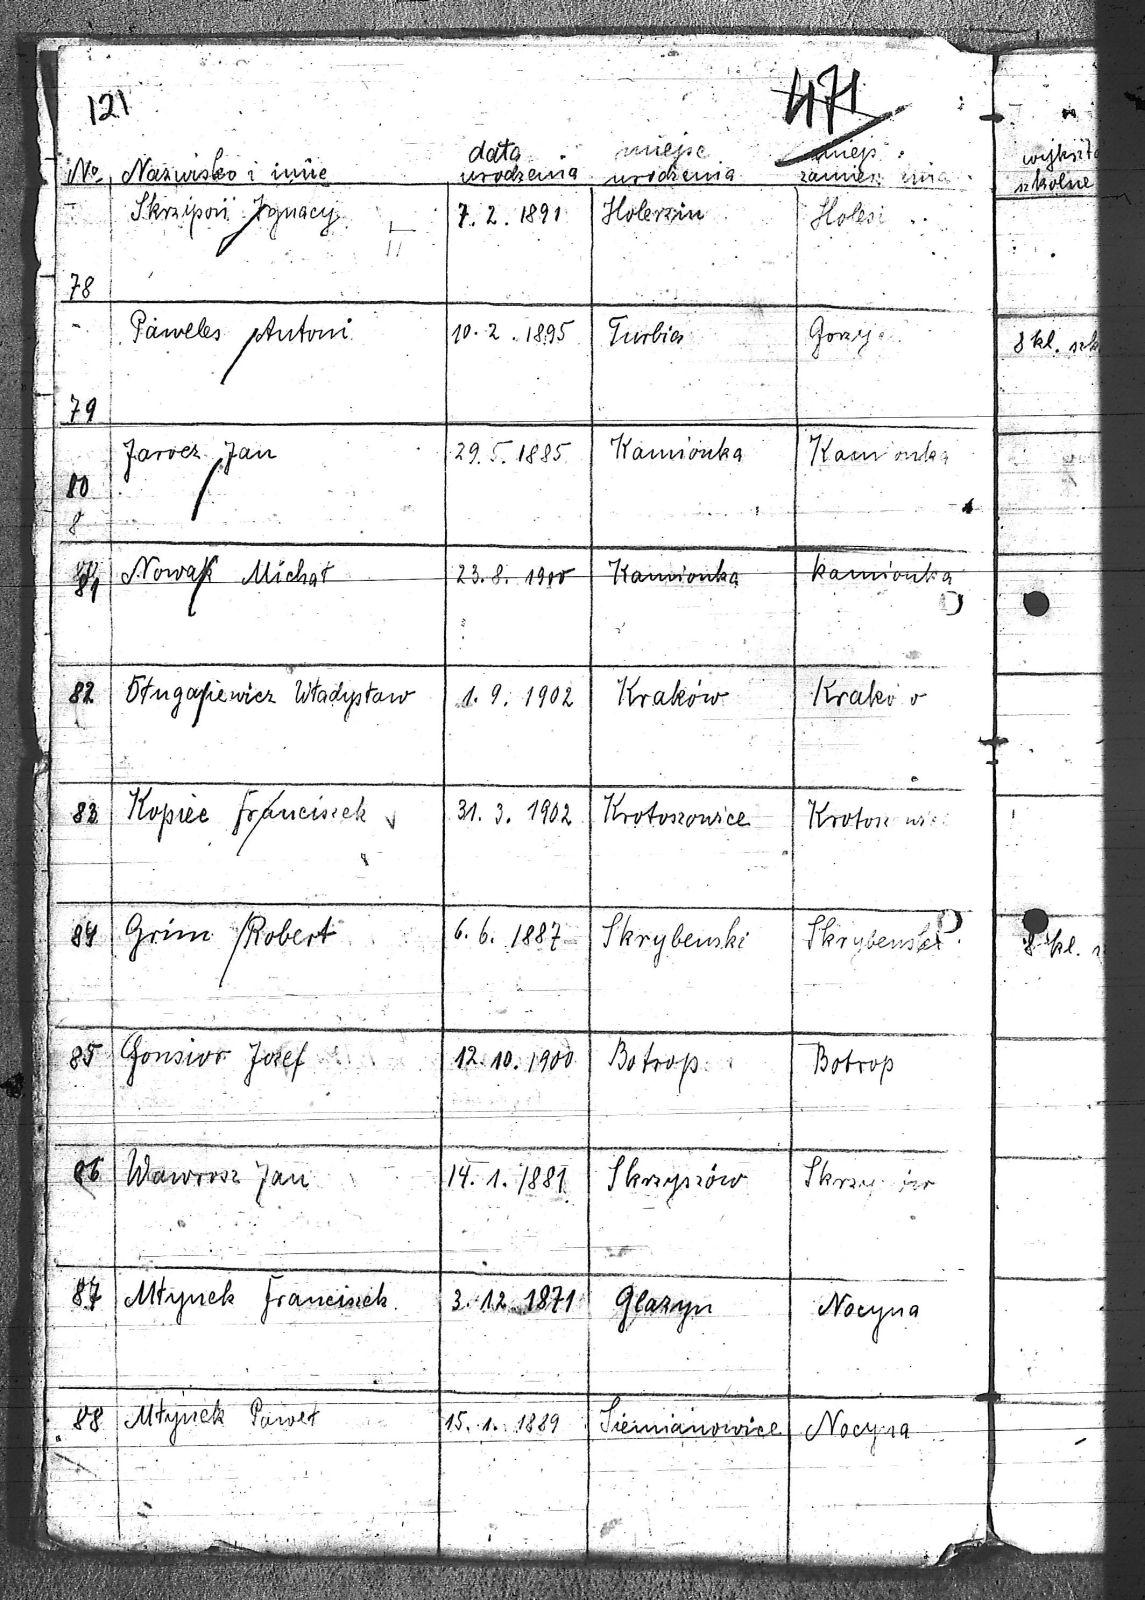 121
471
No Nazwisko i imie data urodzenia miejsc urodzenia miejs zamiesz nia wykszta szkolne
Skrzipoń Ignacy 7. 2. 1891 Holerzin Holesi
78
Paweles Antoni 10. 2. 1895 Turbia Gorzy 8 kl. szk
79
Jarocz Jan 29. 5. 1885 Kamionka Kamionka
80
8
81 Nowak Michał 23. 8. 1900 Kamionka Kamionka
82 Władysław 1. 9. 1902 Kraków Krakó
83 Kopiec Franciszek 31. 3. 1902 Krotoszowice Krotosz wic
84 Grim Robert 6. 6. 1887 Skrybenski Skrybenski 8 kl.
85 Gonsior Jozef 12. 10. 1900 Botrop Botrop
86 Wawrosz Jan 14. 1. 1881 Skrzyszów Skrzy
87 Młynek Franciszek 3. 12 1871 Glazyn Nocyna
88 Młynek Paweł 15. 1. 1889 Siemianowice Nocyna